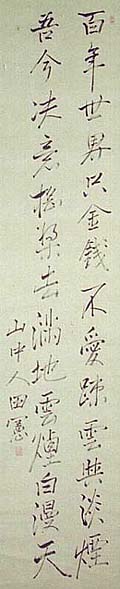 百年世界只金錢不愛踈雲與淡煙
吾今决意搖槳去滿地雲煙白漫天
山中人田憲